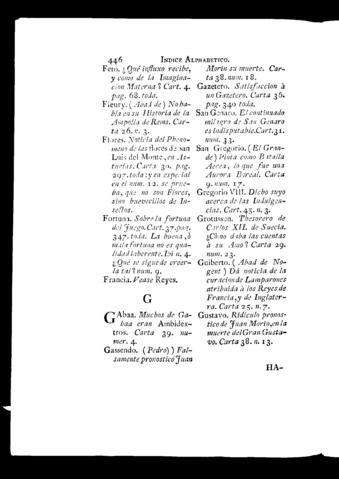 446 INDICE ALPHABETICO.
Feto. ¿Qué influxo recibe,
y como de la Imagina-
cion Materna? Cart. 4.
pag. 68. toda.
Fleury. (Abad de) No ha-
bla en su Historia de la
Ampolla de Rems. Car-
ta 26. n. 3.
Flores. Noticia del Pheno-
meno de las flores de san
Luis del Monte, en As-
turias. Carta 30. pag.
297. toda: y en especial
en el num. 12. se prue-
ba, que no son Flores,
sino huevecillos de In-
sectos.
Fortuna. Sobre la fortuna
del Juego. Cart. 37. pag.
347. toda. La buena, ò
mala fortuna no es qua-
lidad laberente. Ivi n. 4.
¿Qué se sigue de creer-
la tal? num. 9.
Francia. Vease Reyes.
G
GAbaa. Muchos de Ga-
baa eran Ambidex-
tros. Carta 39. nu-
mer. 4.
Gassendo. (Pedro) Fal-
samente pronosticó Juan
Morin su muerte. Car-
ta 38. num. 18.
Gazetero. Satisfaccion à
un Gazetero. Carta 36.
pag. 340 toda.
San Genaro. El continuado
milagro de San Genaro
es indisputable. Cart. 31.
num. 33.
San Gregorio. (El Gran-
de) Pinta como Batalla
Aerea, lo que fue una
Aurora Boreal. Carta
9. num. 17.
Gregorio VIII. Dicho suyo
acerca de las Indulgen-
cias. Cart. 45. n. 3.
Grotusen. Thesorero de
Carlos XII. de Suecia.
¿Cómo daba las cuentas
à su Amo? Carta 29.
num. 23.
Guiberto. (Abad de No-
gent) Dá noticia de la
curacion de Lamparones
atribuida à los Reyes de
Francia, y de Inglater-
ra. Carta 25. n. 7.
Gustavo. Ridiculo pronos-
tico de Juan Morin, en la
muerte del Gran Gusta-
vo. Carta 38. n. 13.
HA-